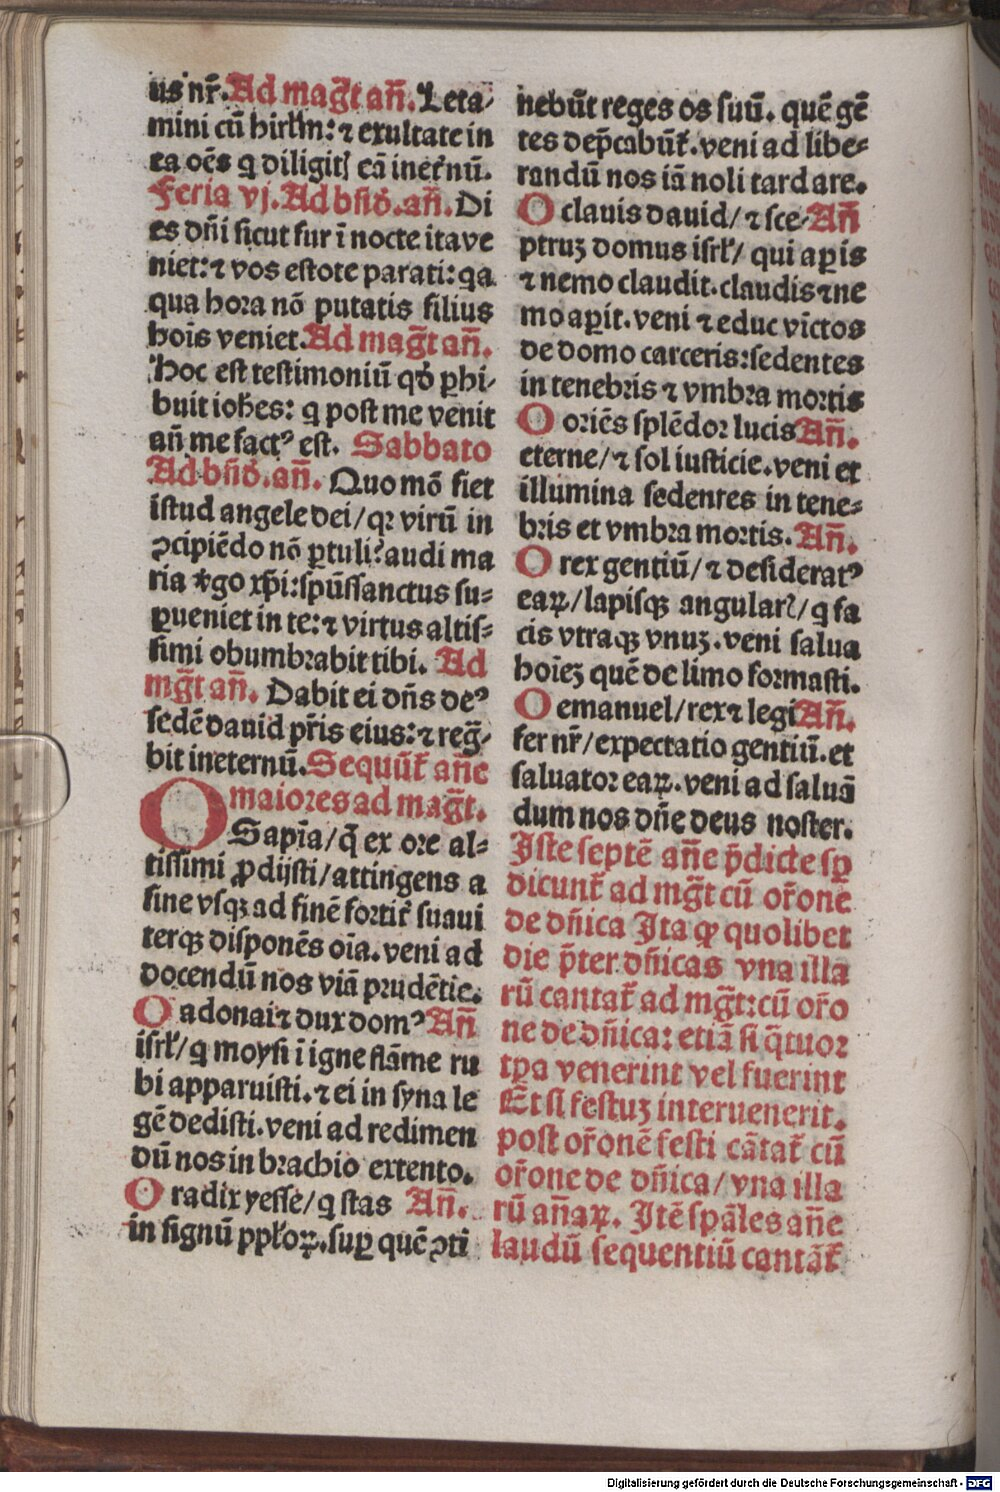 us nr̄. Ad mag̃t an̄. Leta/
mini cū hirłm: ⁊ exultate in
ea oēs q diligitꝭ eā ineẗnū.
Feria vj. Ad bn̄d̄. an̄. Di
es dn̄i sicut fur ī nocte ita ve
niet: ⁊ vos estote parati: qa
qua hora nō putatis filius
hoīs veniet. Ad mag̃t an̄.
Hoc est testimoniū qd̄ ꝑhi/
buit iohēs: q post me venit
an̄ me factꝰ est. Sabbato
Ad bn̄d̄. an̄. Quo mō fiet
istud angele dei/ qꝛ virū in
ꝯcipiēdo nō ꝑtuli? audi ma
ria v̄go xp̄i: spūssanctus su-
ꝑueniet in te: ⁊ virtus altis-
simi obumbrabit tibi. Ad
mg̃t an̄. Dabit ei dn̄s deꝰ
sedē dauid pr̄is eius: ⁊ reg̃/
bit ineternū. Sequūt̄ an̄e
maiores ad mag̃t.
O Sapīa/ q̄ ex ore al-
tissimi ꝓdijsti/ attingens a
fine vsqꝫ ad finē fortit̄ suaui
terqꝫ disponēs oīa. veni ad
docendū nos viā prudētie.
O adonai ⁊ dux domꝰ An̄
isrł/ q moysi ī igne flāme ru
bi apparuisti. ⁊ ei in syna le
gē dedisti. veni ad redimen
dū nos in brachio extento.
O radix yesse/ q stas An̄.
in signū ppłoꝝ. suꝑ quē ꝯti
nebūt reges os suū. quē gē
tes dep̄cabūt̄. veni ad libe-
randū nos iā noli tardare.
O clauis dauid/ ⁊ sce- An̄
ptruꝫ domus isrł/ qui aꝑis
⁊ nemo claudit. claudis ⁊ ne
mo aꝑit. veni ⁊ educ vīctos
de domo carceris: sedentes
in tenebris ⁊ vmbra mortis
O oriēs splēdor lucis An̄.
eterne/ ⁊ sol iusticie. veni et
illumina sedentes in tene-
bris et vmbra mortis. An̄.
O rex gentiū/ ⁊ desideratꝰ
eaꝝ/ lapisqꝫ angularꝭ/ q fa
cis vtraqꝫ vnuꝫ. veni salua
hoīeꝫ quē de limo formasti.
O emanuel/ rex ⁊ legi An̄.
fer nr̄/ expectatio gentiū. et
saluator eaꝝ. veni ad saluā
dum nos dn̄e deus noster.
Iste septē an̄e p̄dicte sꝑ
dicunt̄ ad mg̃t cū or̄one
de dn̄ica Ita ꝙ quolibet
die p̄ter dn̄icas vna illa
rū cantat̄ ad mg̃t: cū or̄o
ne de dn̄ica: etiā si q̄tuor
tꝑa venerint vel fuerint
Et si festuꝫ interuenerit.
post or̄onē festi cātat̄ cū
or̄one de dn̄ica/ vna illa
rū an̄aꝝ. Itē spāles an̄e
laudū sequentiū cantāt̄
Digitalisierung gefördert durch die Deutsche Forschungsgemeinschaft - DFG